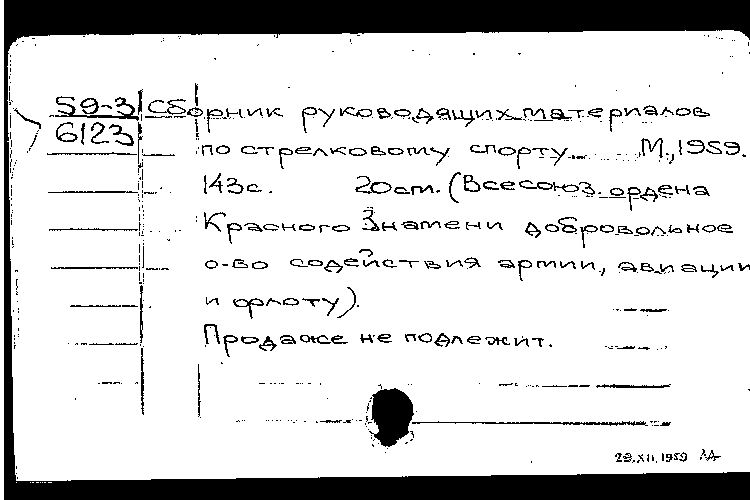 59-3 Сборник руководящих материалов
6123
по стрелковому спорту. М., 1959.
143с. 20см. (Всесоюз. ордена
Красного Знамени добровольное
о-во содействия армии, авиации
и флоту).
Продаже не подлежит.
29.XII.1959